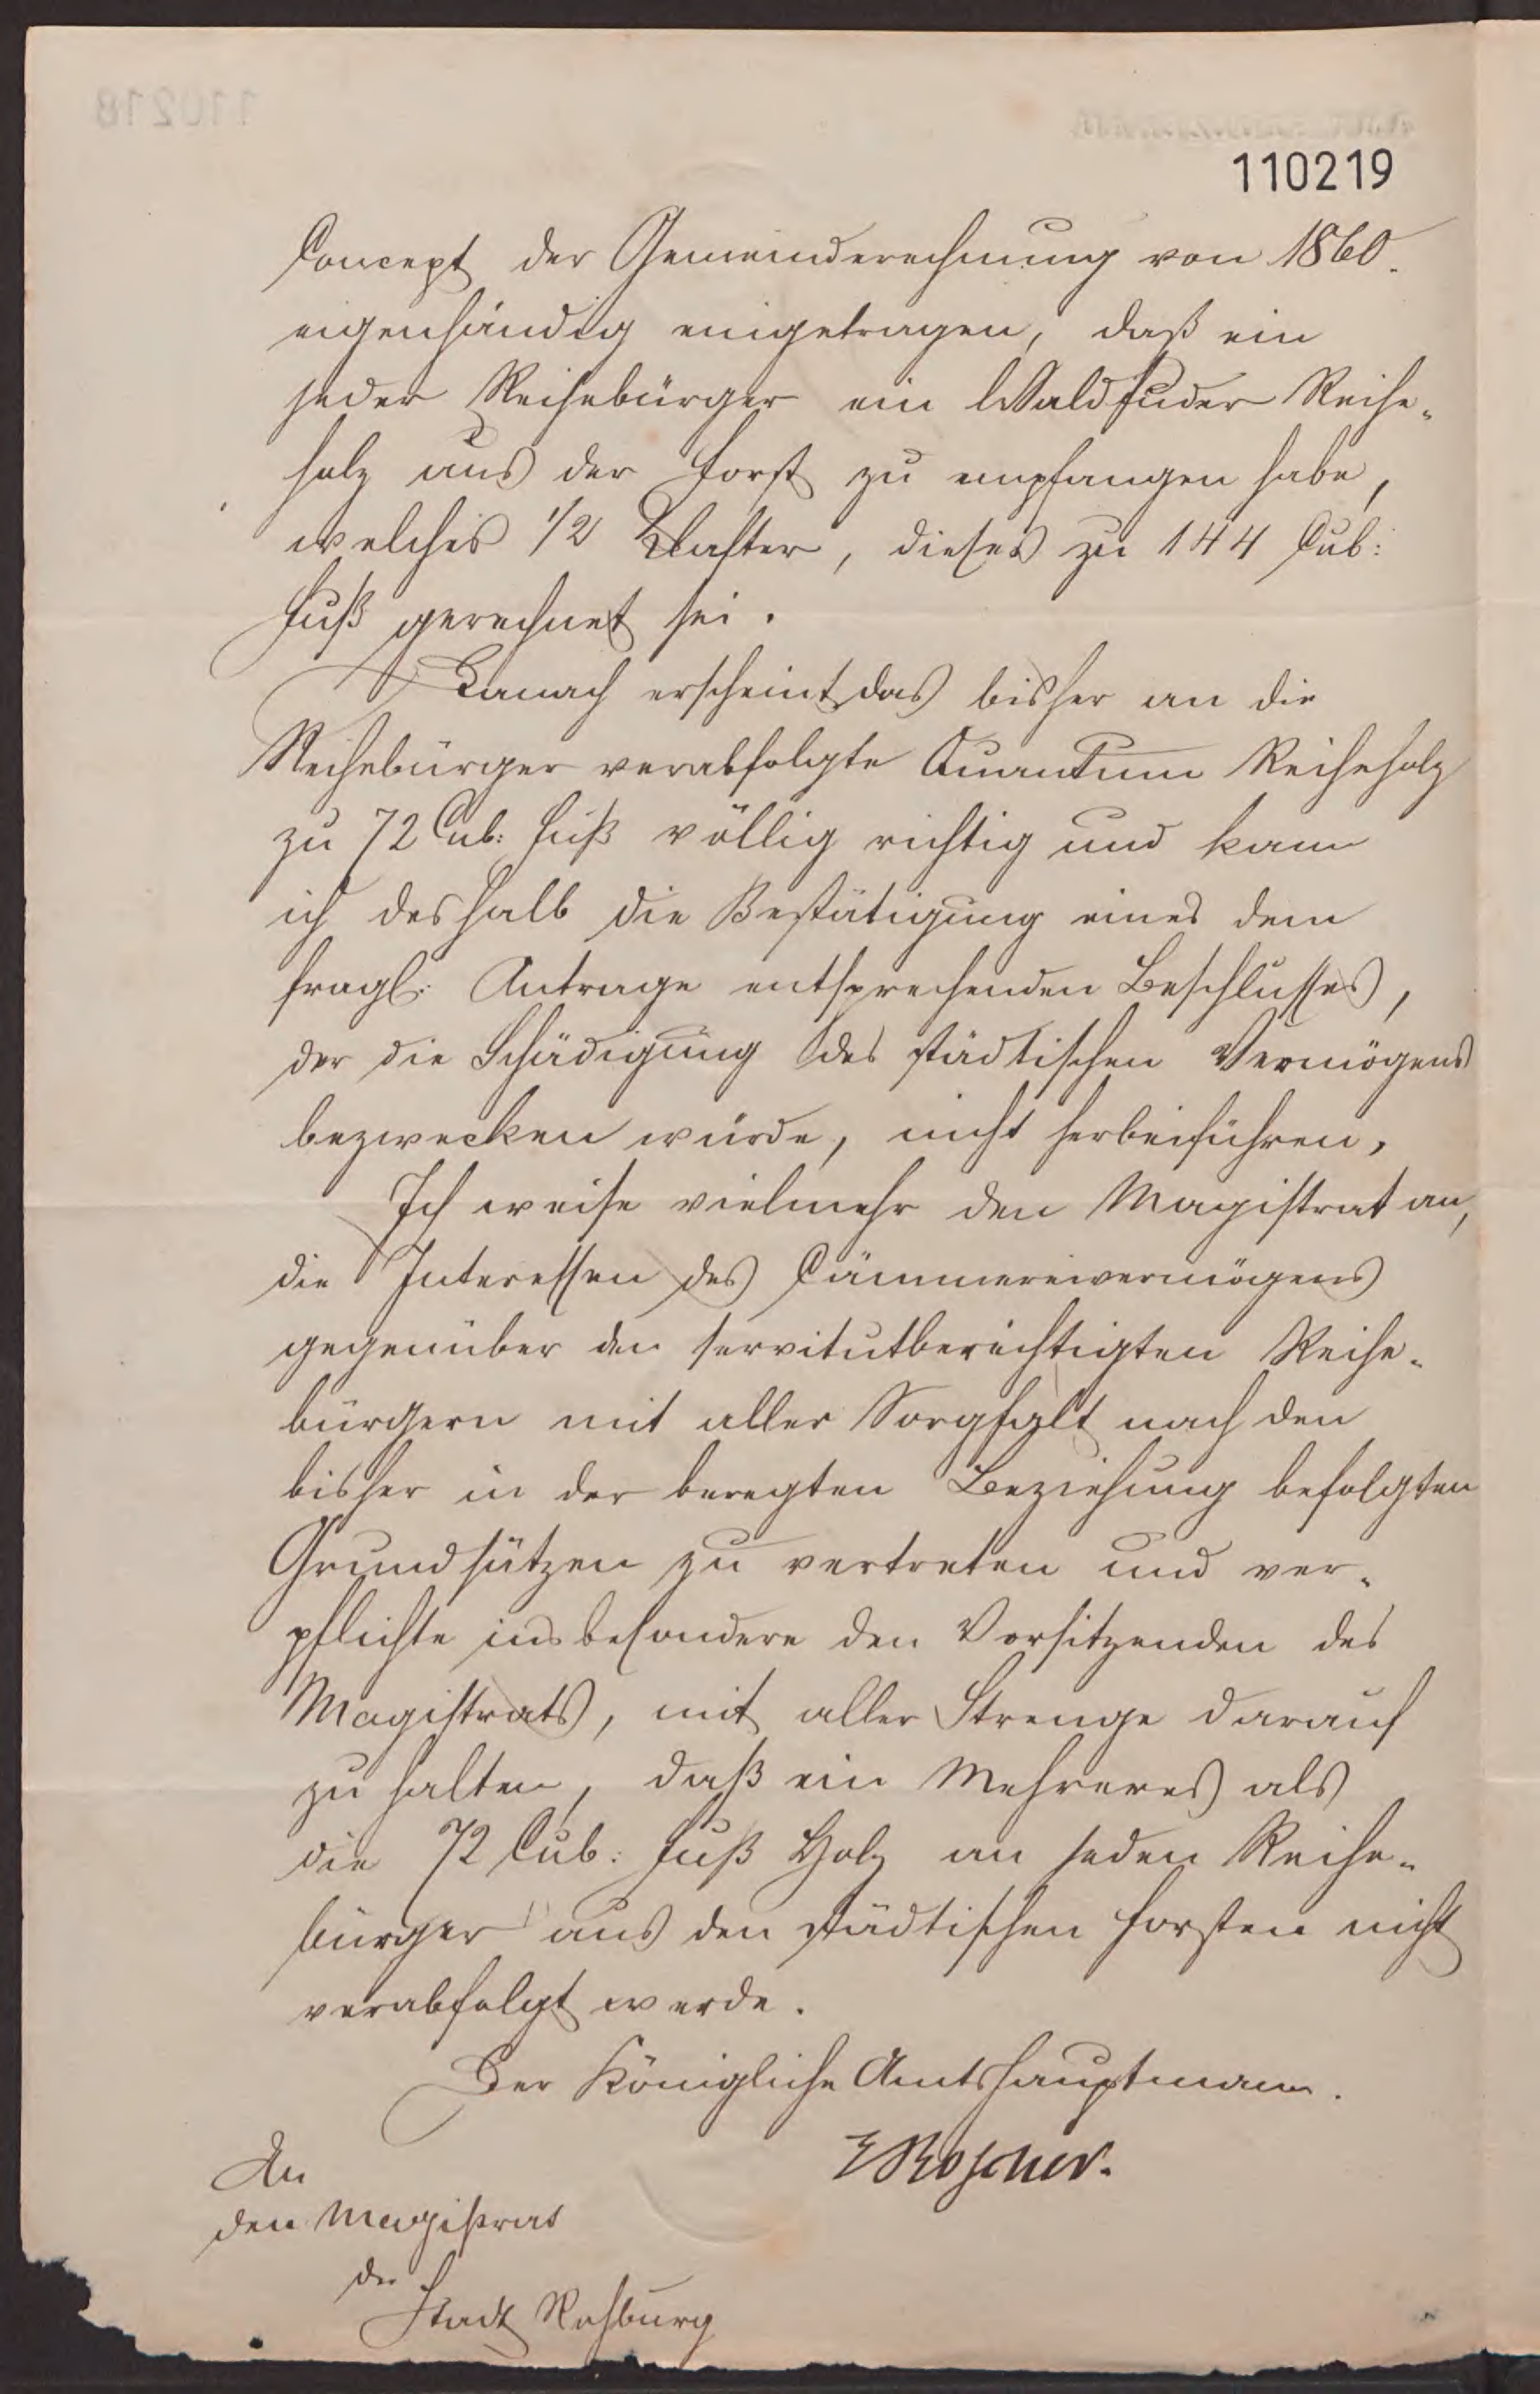 110219
Concept der Gemeinderechnung von 1860.
eigenhändig eingetragen, daß ein
jeder Reihebürger ein Waldfuder Reihe-
holz aus der Forst zu empfangen habe,
welches 1/2 Klafter, dieses zu 144 Cub:
Fuß gerechnet sei.
Danach erscheint das bisher an die
Reihebürger verabfolgte Quantum Reiheholz
zu 72 Cub: Fuß völlig richtig und kann
ich deshalb die Bestätigung eines dem
fragl: Antrage entsprechenden Beschlusses,
der die Schädigung des städtischen Vermögens
bezwecken würde, nicht herbeiführen.
Ich weise vielmehr den Magistrat an,
die Interessen des Cämmereivermögens
gegenüber den servitutberechtigten Reihe-
bürgern mit aller Sorgfalt nach den
bisher in der beregten Beziehung befolgten
Grundsätzen zu vertreten und ver-
pflichte insbesondere den Vorsitzenden des
Magistrats, mit aller Strenge darauf
zu halten, daß ein Mehreres als
die 72 Cub: Fuß Holz an jeden Reihe-
bürger aus den städtischen Forsten nicht
verabfolgt werde.
Der Königliche Amtshauptmann.
An
den Magistrat
der
Stadt Rehburg